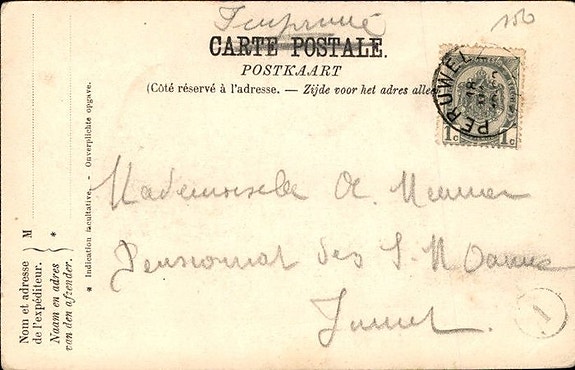 Imprimé
150
CARTE POSTALE.
POSTKAART
(Côté réservé à l'adresse. — Zijde voor het adres alleen
PERUWEL
1c 1c
Mademoiselle A. Meunier
Pensionnat des S. N Dames
Jumet.
1
Nom et adresse
de l'expéditeur.
Naam en adres
van den afzender.
M
*
* Indication facultative. - Onverplichte opgave.